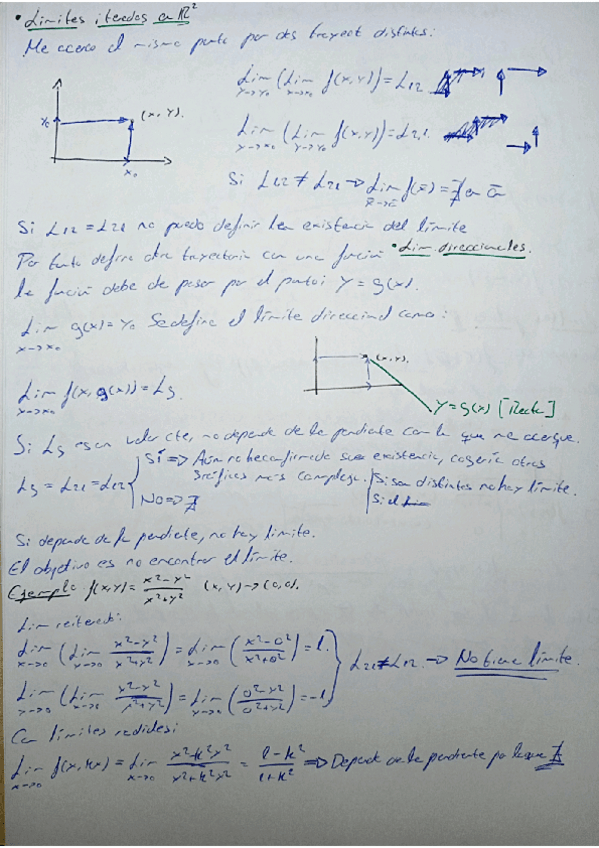 • Límites iterados en R²
Me acerco al mismo punto por dos trayect distintas:
Lim y->y₀ (Lim x->x₀ f(x,y)) = L₁₂
y₀ (x,y).
Lim x->x₀ (Lim y->y₀ f(x,y)) = L₂₁
x₀
Si L₁₂ ≠ L₂₁ => Lim f(x̄) = ∄ en ā
Si L₁₂ = L₂₁ no puedo definir la existencia del límite
Por tanto define otra trayectoria con una función • Lim. direccionales.
la función debe de pasar por el punto: y = g(x).
Lim x->x₀ g(x) = y₀ Se define el límite direccional como:
(x,y).
Lim x->x₀ f(x, g(x)) = Lg
y = g(x) [Recta]
Si Lg es un valor cte, no depende de la pendiente con la que me acerque.
Lg = L₂₁ = L₁₂ { SÍ => Aún no he confirmado su existencia, cogería otras
gráficas más complejas. | Si son distintos no hay límite.
NO => ∄ | Si el
Si depende de la pendiente, no hay límite.
El objetivo es no encontrar el límite.
Ejemplo f(x,y) = (x²-y²)/(x²+y²) (x,y)->(0,0).
Lim reiterado:
Lim x->0 (Lim y->0 (x²-y²)/(x²+y²)) = Lim x->0 ((x²-0²)/(x²+0²)) = 1.
L₂₁ ≠ L₁₂ -> No tiene límite.
Lim y->0 (Lim x->0 (x²-y²)/(x²+y²)) = Lim y->0 ((0²-y²)/(0²+y²)) = -1
Con límites radiales:
Lim x->0 f(x,kx) = Lim x->0 (x²-k²x²)/(x²+k²x²) = (1-k²)/(1+k²) => Depende de la pendiente por lo que ∄